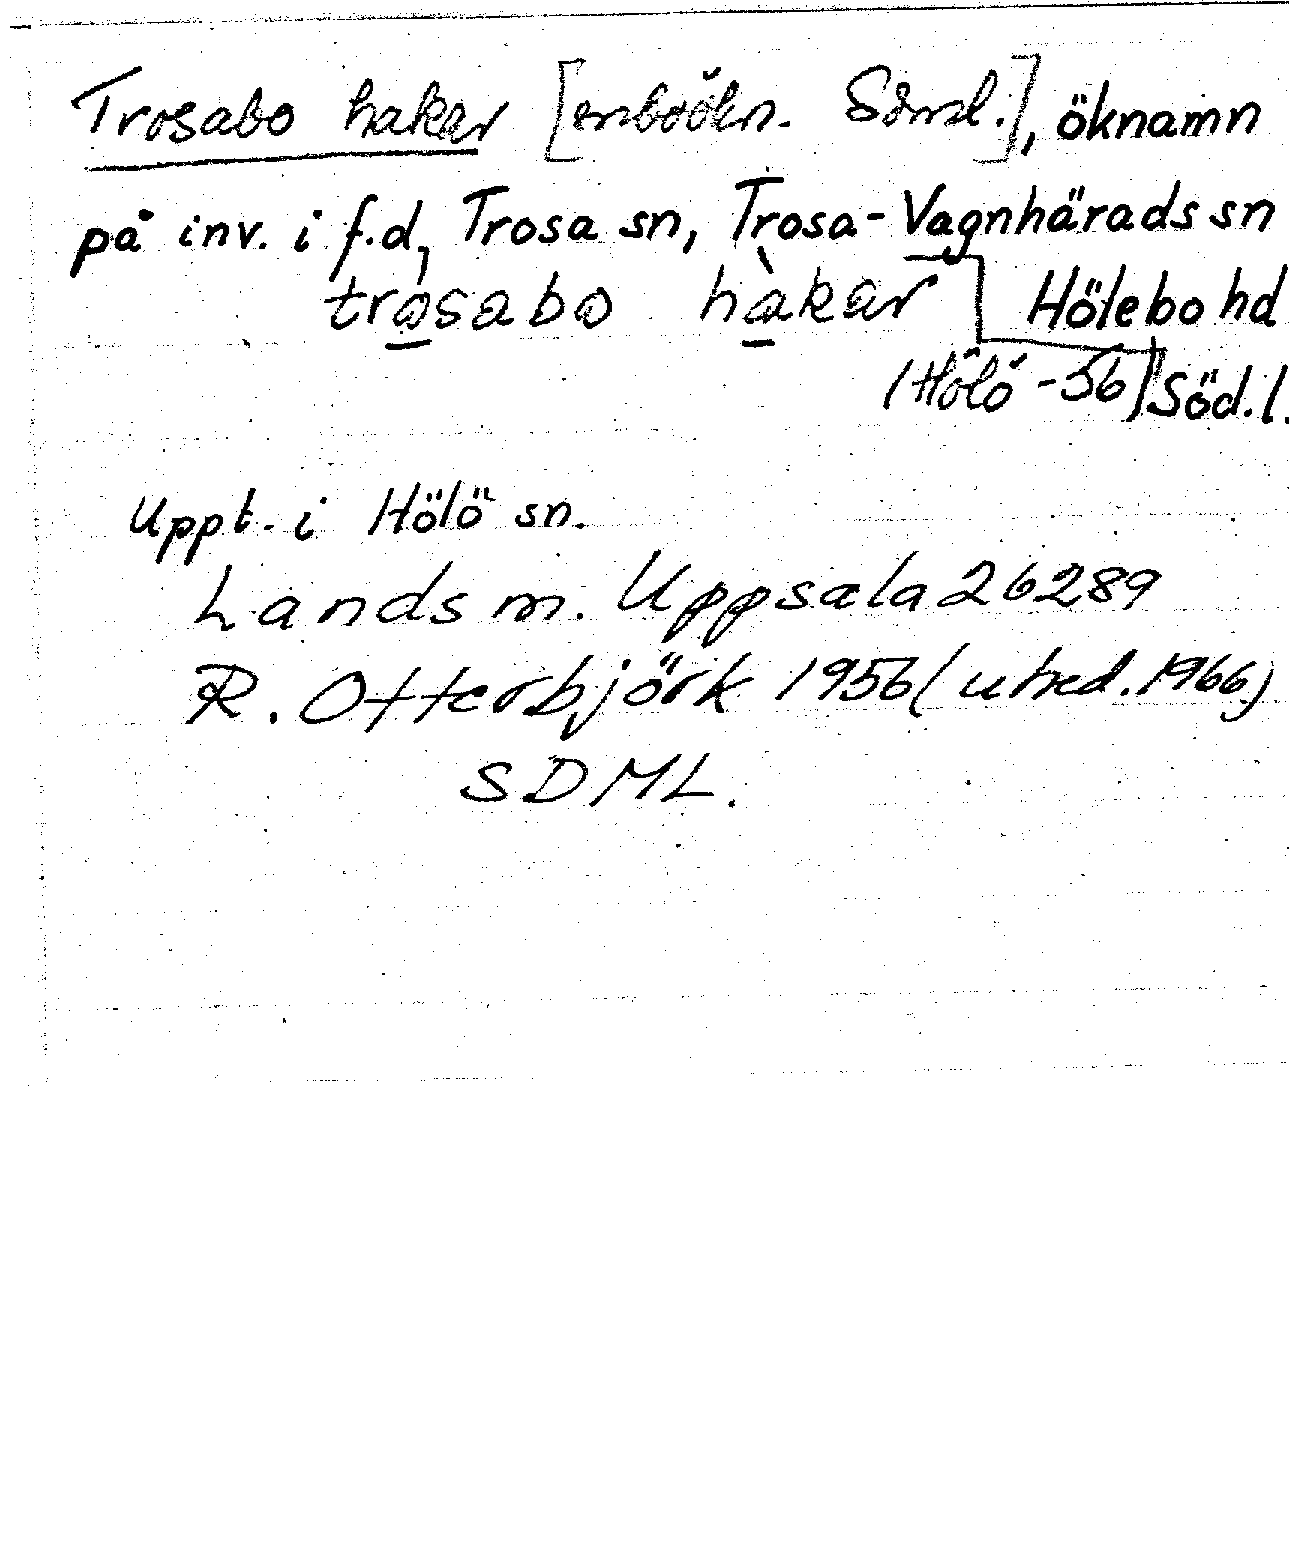 Trosabo hakar [inboökn. Sörml.], öknamn
på inv. i f.d. Trosa sn, Trosa-Vagnhärads sn
trosabo hakar Hölebo hd
(Hölö -56) Söd.l.
Uppt. i Hölö sn.
Landsm. Uppsala 26289
R. Otterbjörk 1956 (utred. 1966)
SDML.